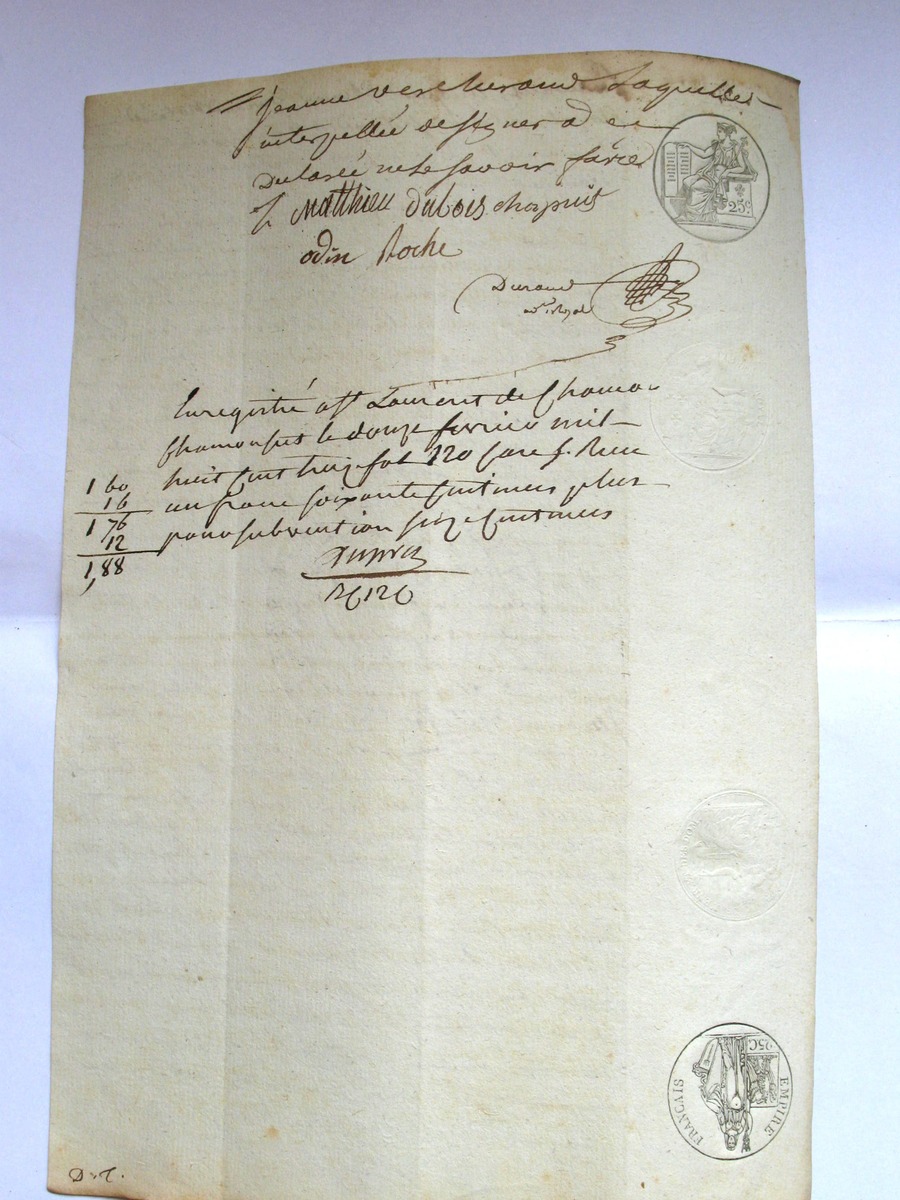 jeanne Vercherand Laquelle
interpellée de signer a
déclaré ne le savoir faire
Matthieu dubois chapuis
odin Roche
25c
Durand
Enregistré à St Laurent de Chamou
Chamousset le douze février mil
huit cent treize fol 120 case f. Reçu
un franc soixante centimes plus
pour subvention seize centimes
1 60
16
1 76
12
1,88
25C
EMPIRE FRANÇAIS